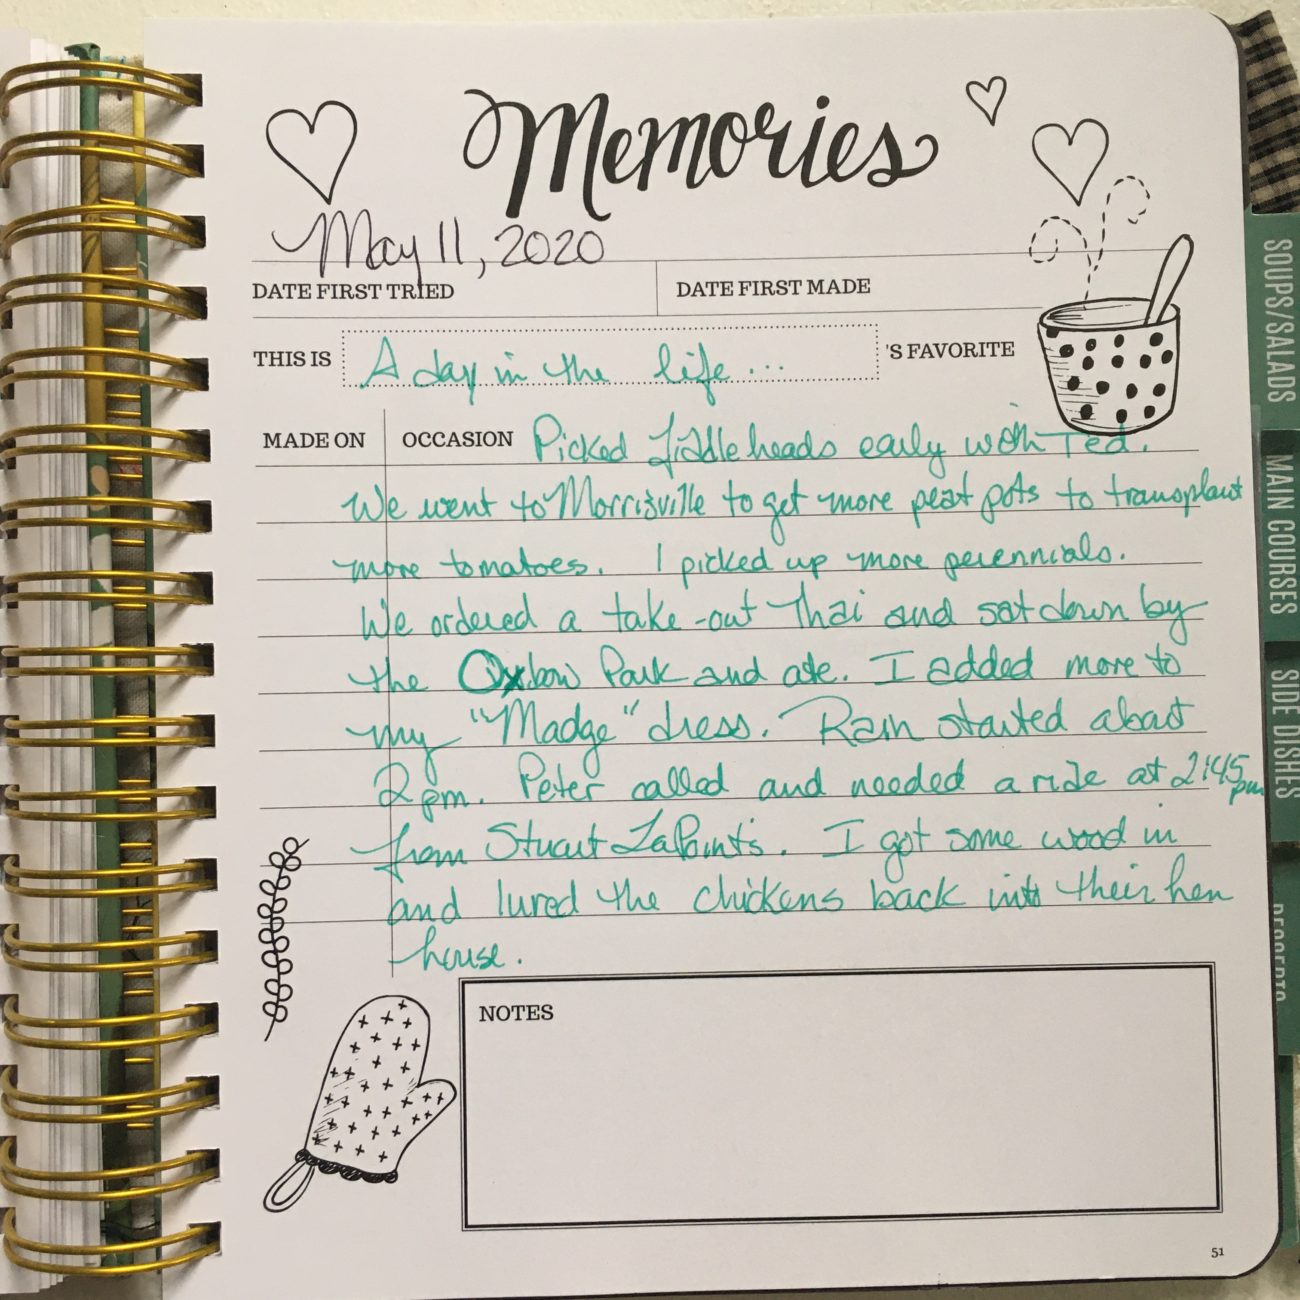 Memories
May 11, 2020
DATE FIRST TRIED DATE FIRST MADE
THIS IS A day in the life ... 'S FAVORITE
MADE ON OCCASION Picked fiddleheads early with Ted.
We went to Morrisville to get more peat pots to transplant
more tomatoes. I picked up more perennials.
We ordered a take-out Thai and sat down by
the Oxbow Park and ate. I added more to
my "Madge" dress. Rain started about
2pm. Peter called and needed a ride at 2:45pm
from Stuart LaPoint's. I got some wood in
and lured the chickens back into their hen
house.
NOTES
51
SOUPS/SALADS
MAIN COURSES
SIDE DISHES
DESSERTS